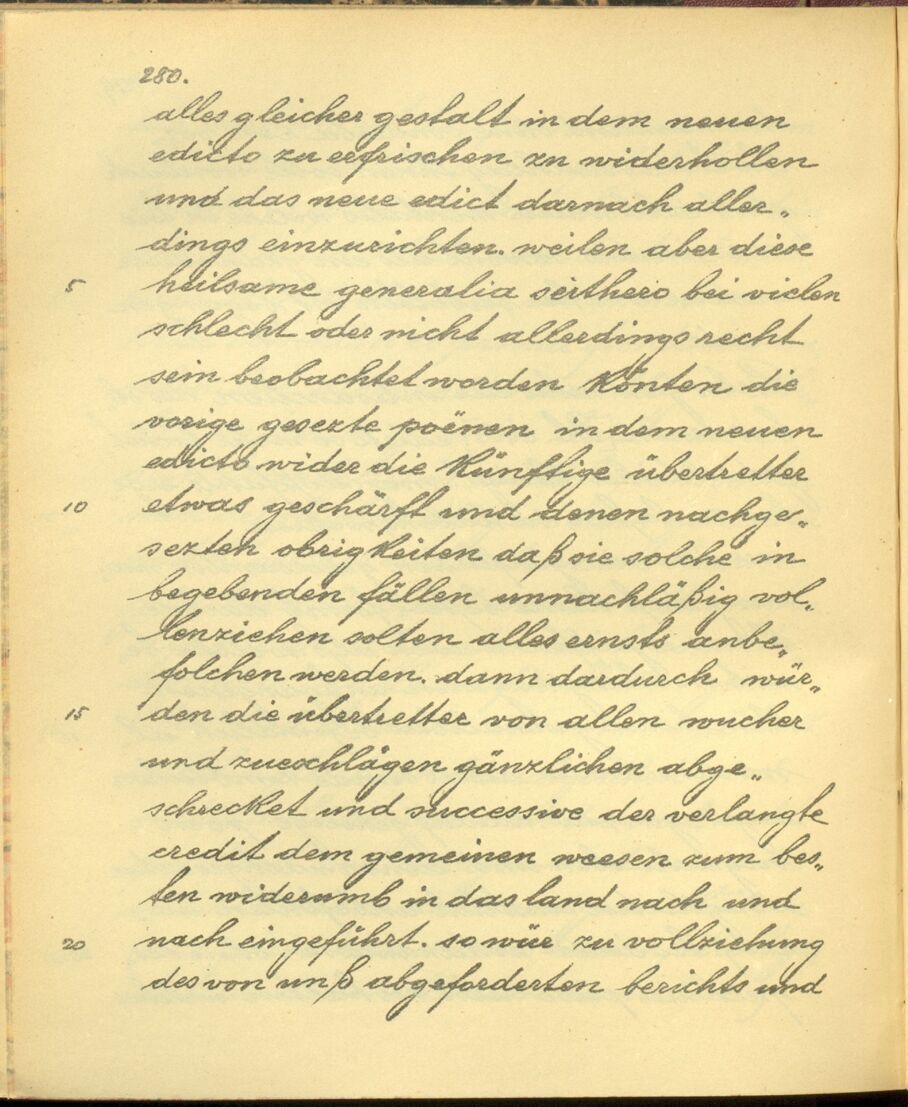 280.
alles gleicher gestalt in dem neuen
edicto zu erfrischen zu widerhollen
und das neue edict darnach aller„
dings einzurichten. weilen aber diese
5 heilsame generalia seithero bei vielen
schlecht oder nicht allerdings recht
sein beobachtet worden könten die
vorige gesezte poënen in dem neuen
edicto wider die künfftige übertretter
10 etwas geschärft und denen nachge„
sezten obrigkeiten daß sie solche in
begebenden fällen unnachläßig vol„
lenziehen solten alles ernsts anbe„
folchen werden. dann dardurch wür„
15 den die übertretter von allen wucher
und zueschlägen gänzlichen abge„
schrecket und successive der verlangte
credit dem gemeinen weesen zum bes„
ten widerumb in das land nach und
20 nach eingeführt. so wür zu vollziehung
des von unß abgeforderten berichts und